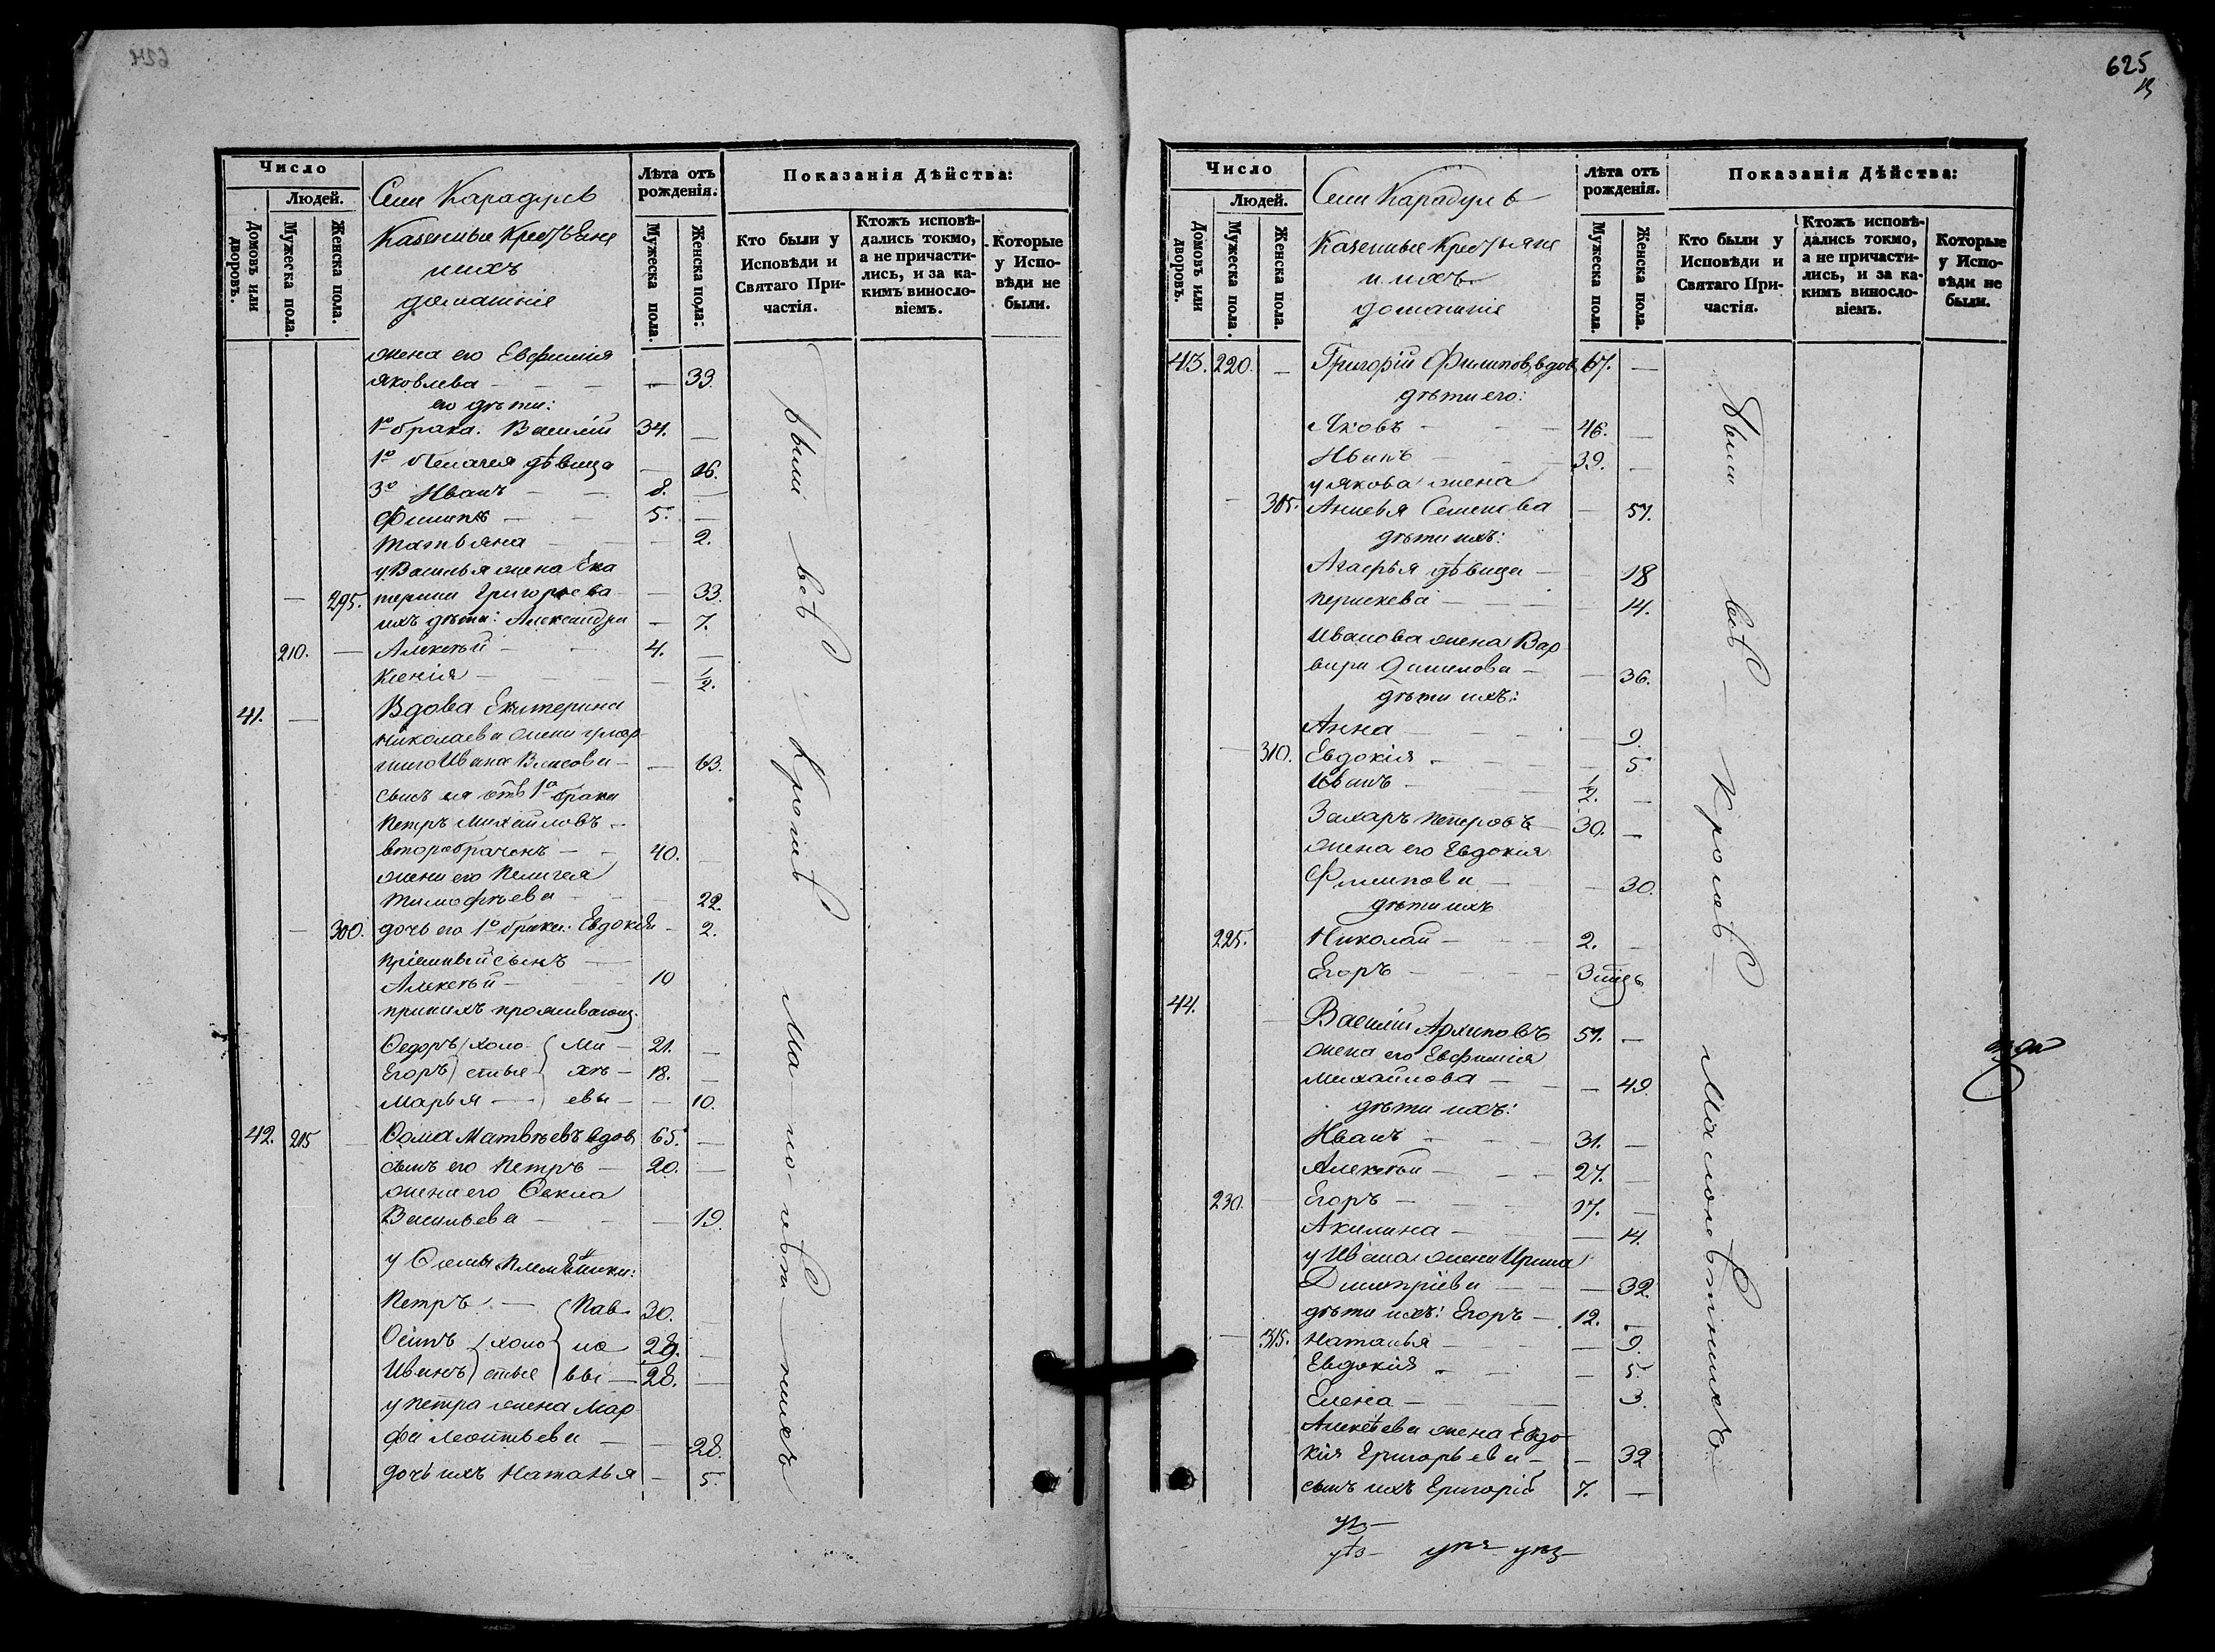 625
Число
Людей.
Домовъ или дворовъ.
Мужеска пола.
Женска пола.
Села Карадулъ
Казенные Крестьяне
и ихъ
домашніе
Лѣта отъ рожденія.
Мужеска пола.
Женска пола:
Показанія Дѣйства:
Кто были у Исповѣди и Святаго Причастія.
Ктожъ исповѣдались токмо, а не причастились, и за какимъ винословіемъ.
Которые у Исповѣди не были.
жена его Евфимія
Яковлева — — 33.
его дѣти:
1го брака. Василій 34. —
1го Пелагея дѣвица — 16.
3го Иванъ — 8. —
Филипъ — 5. —
Татьяна — 2.
у Василья жена Ека
— 295. терина Григорьева — 33.
ихъ дѣти: Александра — 7.
210. — Алексѣй — 4. —
Ксенія — — 1/2.
41. — Вдова Екатерина
Николаева жена умер
шаго Ивана Власова — — 63.
сынъ ея отъ 1го брака
Петръ Михайловъ
вторабраченъ — 40. —
жена его Пелагея
Тимофѣева — 22.
— 300. дочь его 1го брака: Евдокія — 2.
пріемный сынъ —
Алексѣй — 10
при нихъ проживающ.
Ѳедоръ холо Ми — 21. —
Егоръ стые хѣ — 18. —
Марья — евы — — 10.
42. 215 — Ѳома Матвѣевъ вдов 65. —
сынъ его Петръ — 20. —
жена его Ѳекла
Васильева — — 19.
у Ѳомы племянники:
Петръ — Пав 30. —
Осипъ холо ло 28. —
Иванъ стые вы — 28. —
у Петра жена Мар
фа Леонтьева — — 28.
дочь ихъ Наталья — 5.
были всѣ кромѣ Малолѣтнихъ
Число
Людей.
Домовъ или дворовъ.
Мужеска пола.
Женска пола.
Села Карадулъ
Казенные Крестьяне
и ихъ
домашніе
Лѣта отъ рожденія.
Мужеска пола.
Женска пола.
Показанія Дѣйства:
Кто были у Исповѣди и Святаго Причастія.
Ктожъ исповѣдались токмо, а не причастились, и за какимъ винословіемъ.
Которые у Исповѣди не были.
43. 220. — Григорій Филиповъ вдов 67. —
дѣти его:
Яковъ — 46. —
Иванъ — 39. —
у Якова жена
— 305. Анисья Семенова — 57.
дѣти ихъ:
Агафья дѣвица — — 18
Перискева — — 14.
Иванова жена Вар
вара Данилова — — 36.
дѣти ихъ:
Анна — — 9.
— 310. Евдокія — — 5
Иванъ — 1/2. —
Захаръ Петровъ — 30. —
жена его Евдокия
Филипова — — 30.
дѣти ихъ
225. Николай — 2. —
Егоръ — 3 мѣсь
44. — Василій Архиповъ 57. —
жена его Евфимія
Михайлова — — 49.
дѣти ихъ:
Иванъ — 31. —
Алексѣй — 27. —
230. — Егоръ — 17. —
Акилина — — 14.
у Ивана жена Ирина
Димитріева — — 32.
дѣти ихъ: Егоръ — 12. —
— 315. Наталья — — 9.
Евдокія — 5.
Елена — 3.
Алексѣева жена Евдо
кія Григорьева — — 32
сынъ ихъ Григорій 7. —
были всѣ — кромѣ — Малолѣтнихъ